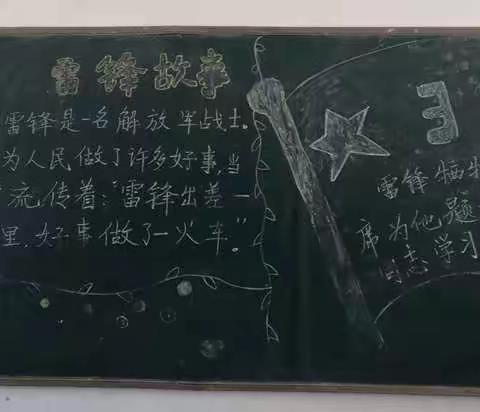 雷锋故事
雷锋是一名解放军战士。
为人民做了许多好事,当
流传着:“雷锋出差一
里,好事做了一火车。”
3
雷锋牺牲
席为他题
同志学习